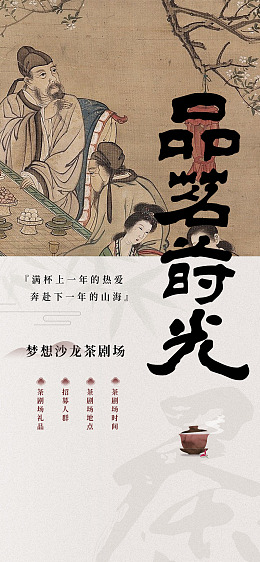 品茗时光
『满杯上一年的热爱
奔赴下一年的山海』
梦想沙龙茶剧场
茶剧场时间
茶剧场地点
招募人群
茶剧场礼品
茶